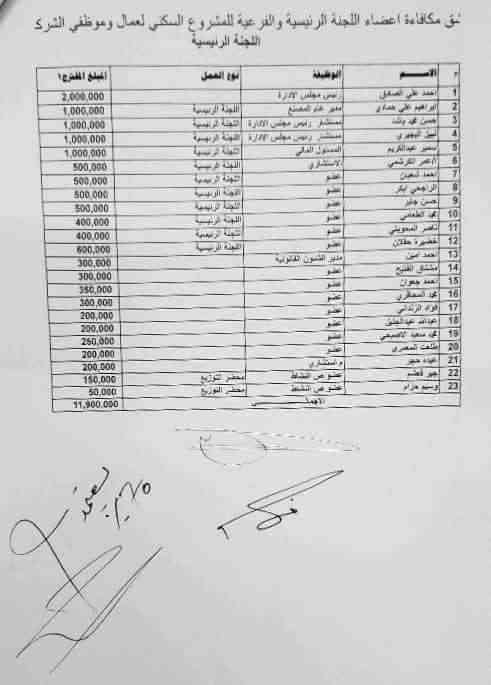 ـق مكافاءة اعضاء اللجنة الرئيسية والفرعية للمشروع السكني لعمال وموظفي الشرك
اللجنة الرئيسية
م الاســـم الوظيفة نوع العمل المبلغ المقترح1
1 احمد علي الصادق رئيس مجلس الادارة 2,000,000
2 ابراهيم علي حمادي مدير عام المصنع اللجنة الرئيسية 1,000,000
3 حسن محمد راشد مستشار رئيس مجلس الادارة اللجنة الرئيسية 1,000,000
4 نبيل البحيري مستشار رئيس مجلس الادارة اللجنة الرئيسية 1,000,000
5 سمير عبدالكريم المسئول المالي اللجنة الرئيسية 1,000,000
6 الاستشاري اللجنة الرئيسية 500,000
7 احمد عضو اللجنة الرئيسية 500,000
8 الراجحي ابكر عضو اللجنة الرئيسية 500,000
9 حسن جابر عضو اللجنة الرئيسية 500,000
10 محمد الطعامي عضو اللجنة الرئيسية 400,000
11 ناصر عضو اللجنة الرئيسية 400,000
12 عضو اللجنة الرئيسية 600,000
13 احمد امين مدير الشئون القانونية 300,000
14 مشتاق عضو 300,000
15 احمد عضو 350,000
16 محمد المعافري عضو 300,000
17 فؤاد عضو 200,000
18 عبدالله عضو 200,000
19 محمد سعيد الاصبحي عضو 250,000
20 طلعت المصري عضو 200,000
21 عبده م استشاري 200,000
22 عضو ص النشاط محضر التوزيع 150,000
23 وسيم عضو ص النشاط محضر التوزيع 50,000
الاجمالـــي 11,900,000